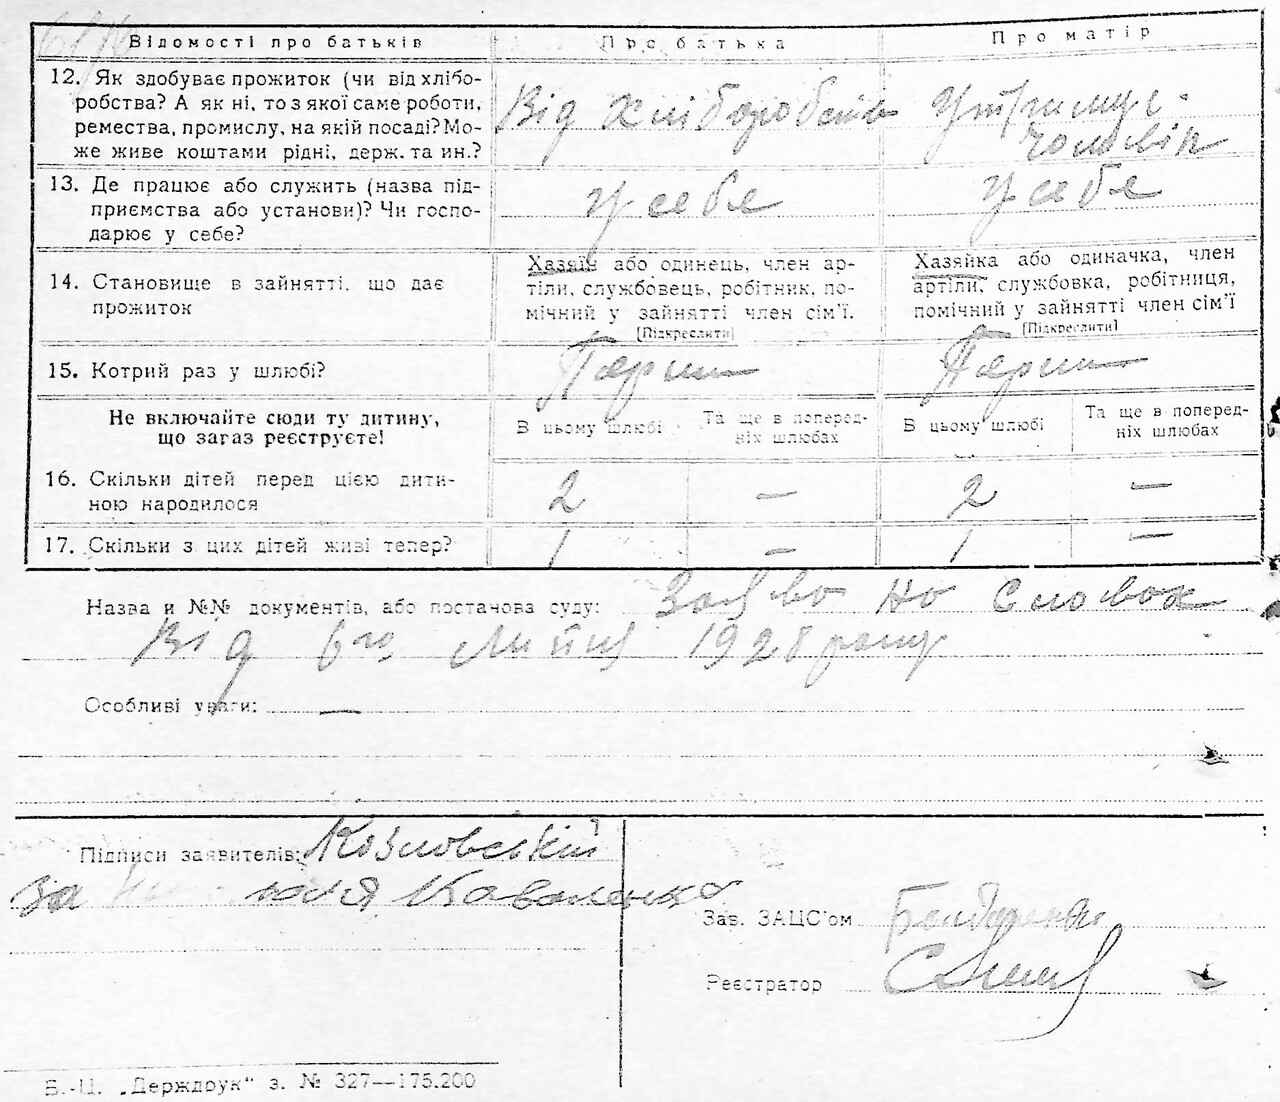 Відомості про батьків
Про батька
Про матір
12. Як здобуває прожиток (чи від хлібо-
робства? А як ні, то з якої саме роботи,
ремества, промислу, на якій посаді? Мо-
же живе коштами рідні, держ. та ин.?
Від хліборобства
Утримує
чоловік
13. Де працює або служить (назва під-
приємства або установи)? Чи госпо-
дарює у себе?
У себе
У себе
14. Становище в зайнятті, що дає
прожиток
Хазяїн або одинець, член ар-
тіли, службовець, робітник, по-
мічний у зайнятті член сім’ї.
[Підкреслити]
Хазяйка або одиначка, член
артіли, службовка, робітниця,
помічний у зайнятті член сім’ї
[Підкреслити]
15. Котрий раз у шлюбі?
Перш
Перш
Не включайте сюди ту дитину,
що загаз реєструєте!
В цьому шлюбі
Та ще в поперед-
ніх шлюбах
В цьому шлюбі
Та ще в поперед-
ніх шлюбах
16. Скільки дітей перед цією дити-
ною народилося
2 — 2 —
17. Скільки з цих дітей живі тепер?
1 — 1 —
Назва и №№ документів, або постанова суду: Заяво на словах
Від 6го липня 1928 року
Особливі уваги: —
Підписи заявителів: Козловський
за Коваленко
Зав. ЗАЦС'ом
Реєстратор
Б.-Ц. „Держдрук" з. № 327—175.200